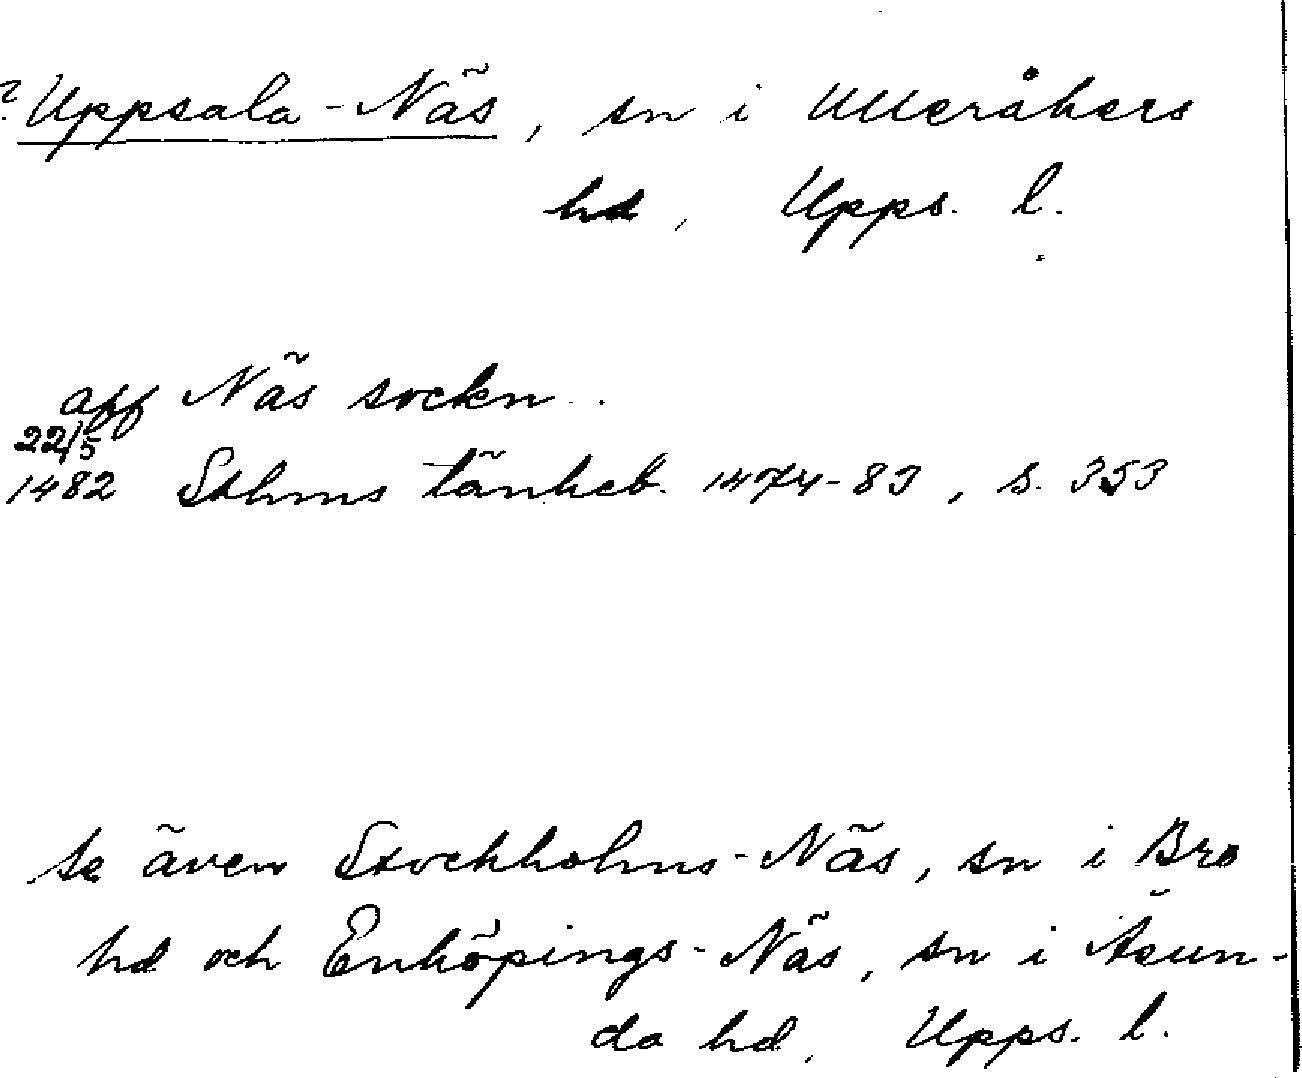 ? Uppsala-Näs, sn i Ulleråkers
hd, Upps. l.
aff Näs sockn..
22/5
1482 Sthms tänkeb. 1474-83, s. 353
Se även Stockholms-Näs, sn i Bro
hd och Enköpings-Näs, sn i Åsun-
da hd, Upps. l.